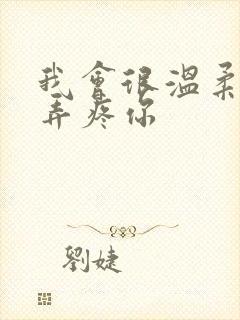 我會很溫柔
弄疼你
劉婕